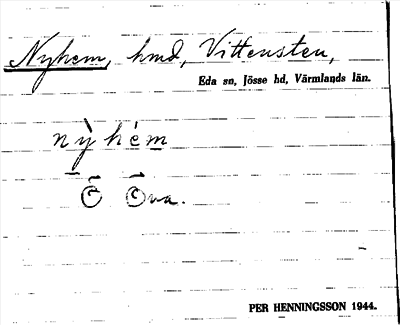 Nyhem, hmd, Vittensten,
Eda sn, Jösse hd, Värmlands län.
nỳhèm
Ō Ōva.
PER HENNINGSSON 1944.